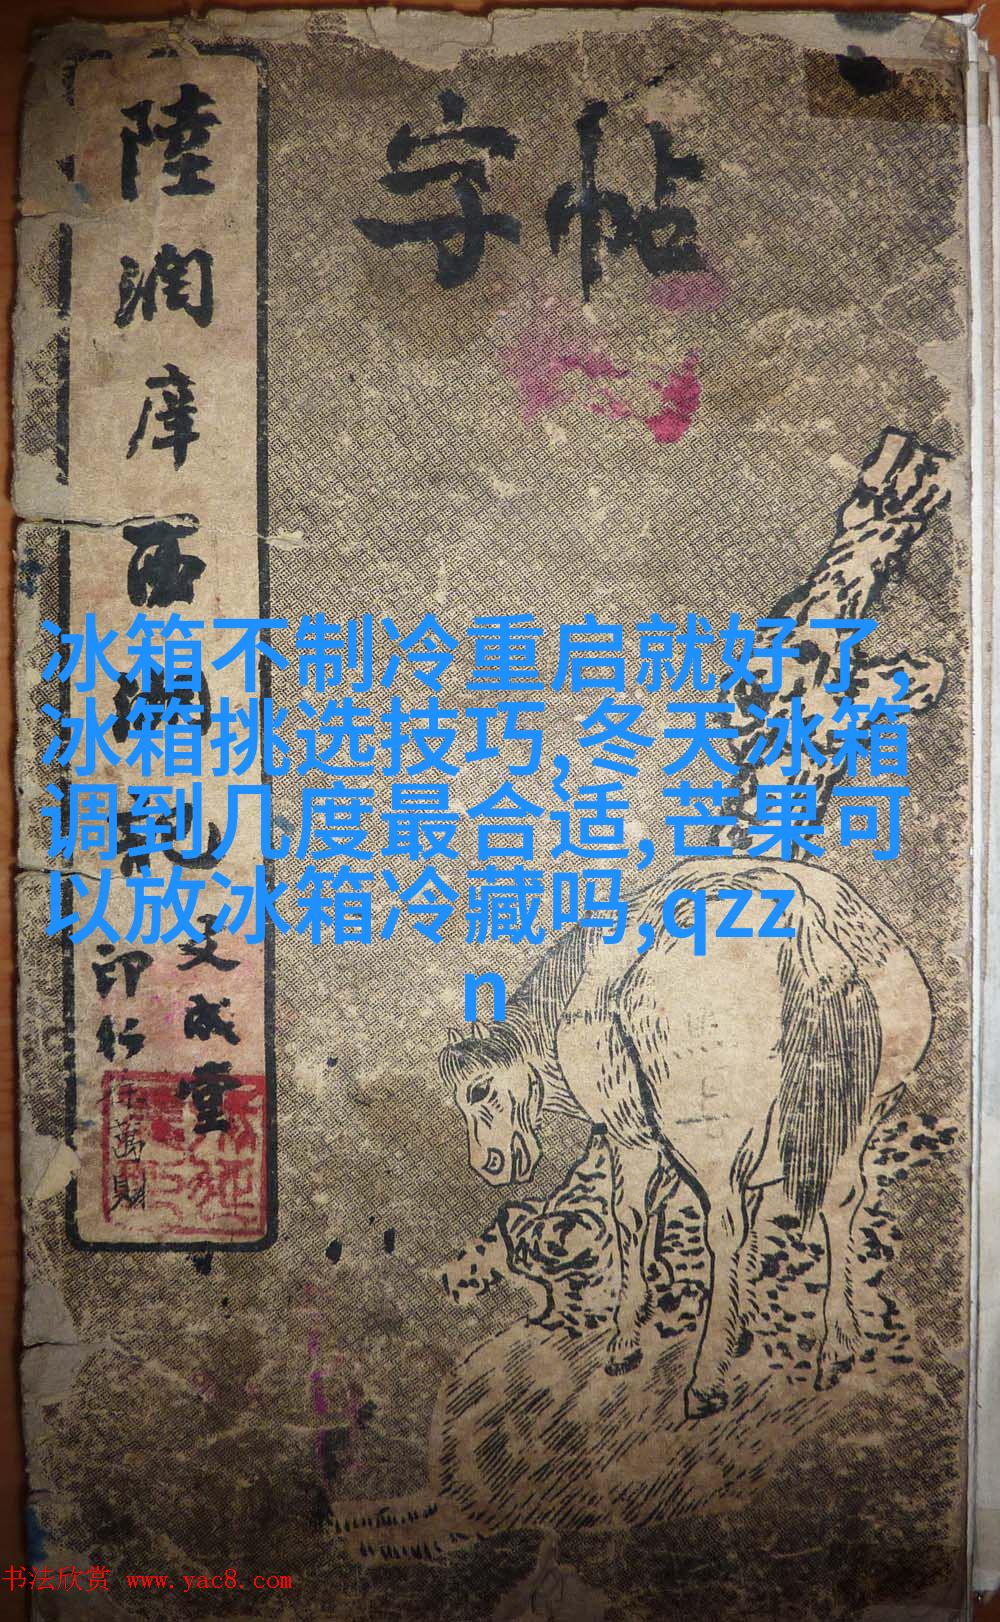 字帖
陸潤庠西湖記
文成堂
印行
徐萬財
冰箱不制冷重启就好了,
冰箱挑选技巧,冬天冰箱
调到几度最合适,芒果可
以放冰箱冷藏吗,qzz
n
书法欣赏 www.yac8.com